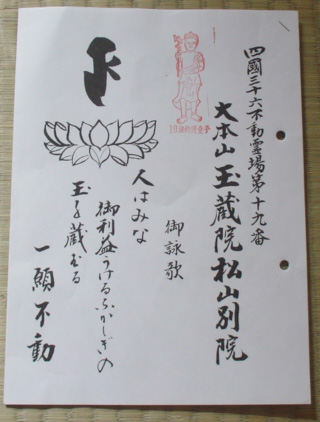 四國三十六不動霊場第十九番
大本山玉蔵院松山別院
御詠歌
人はみな
御利益うけるふかしぎの
玉を蔵むる
一願不動